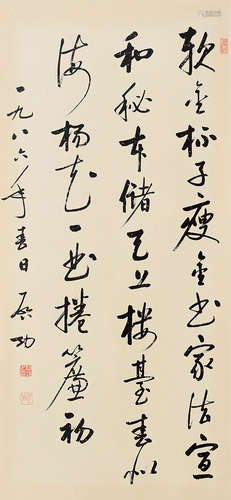 软金杯子瘦金书家法宣
和秘本储天上楼台春似
海杨花一曲捲簾初
一九八六年春日 启功